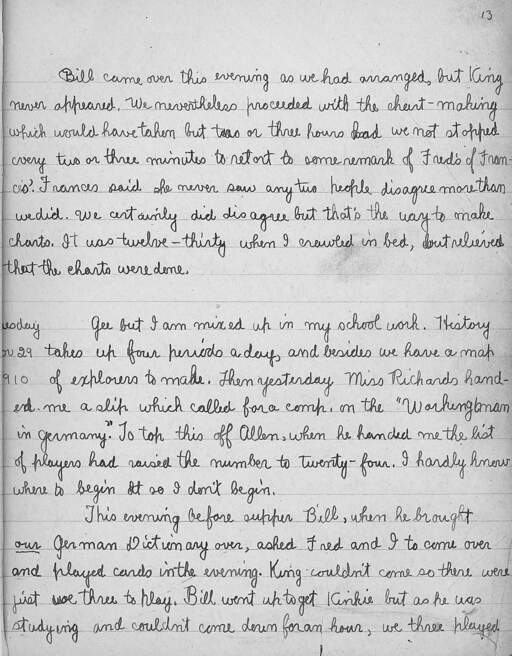 13
Bill came over this evening as we had arranged, but King
never appeared. We nevertheless proceeded with the chart-making
which would have taken but two or three hours had we not stopped
every two or three minutes to retort to some remark of Fred's of Fran-
cis'. Frances said she never saw any two people disagree more than
we did. We certainly did disagree but that's the way to make
charts. It was twelve-thirty when I crawled in bed, but relieved
that the charts were done.
uesday Gee but I am mixed up in my school work. History
ov 29 takes up four periods a day, and besides we have a map
910 of explorers to make. Then yesterday Miss Richards hand-
ed me a slip which called for a comp. on the "Workingman
in germany." To top this off Allen, when he handed me the list
of players had raised the number to twenty-four. I hardly know
where to begin at so I don't begin.
This evening before supper Bill, when he brought
our German Dictionary over, asked Fred and I to come over
and played cards in the evening. King couldn't come so there were
just we three to play. Bill went up to get Kinkie but as he was
studying and couldn't come down for an hour, we three played